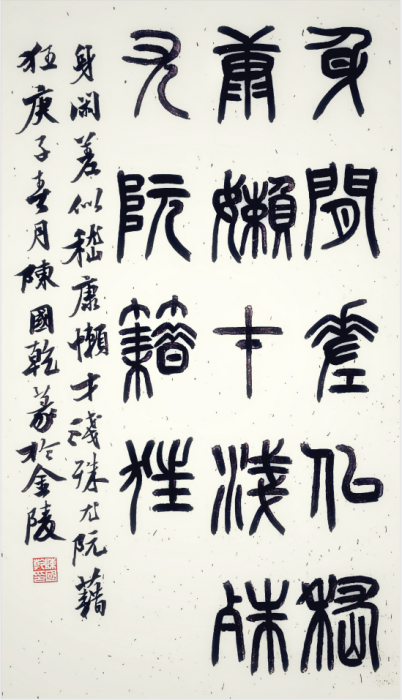 身閒差似嵇
康嬾才淺殊
无阮籍狂
身閑差似嵇康懶才淺殊无阮籍
狂庚子春月陳國乾篆於金陵